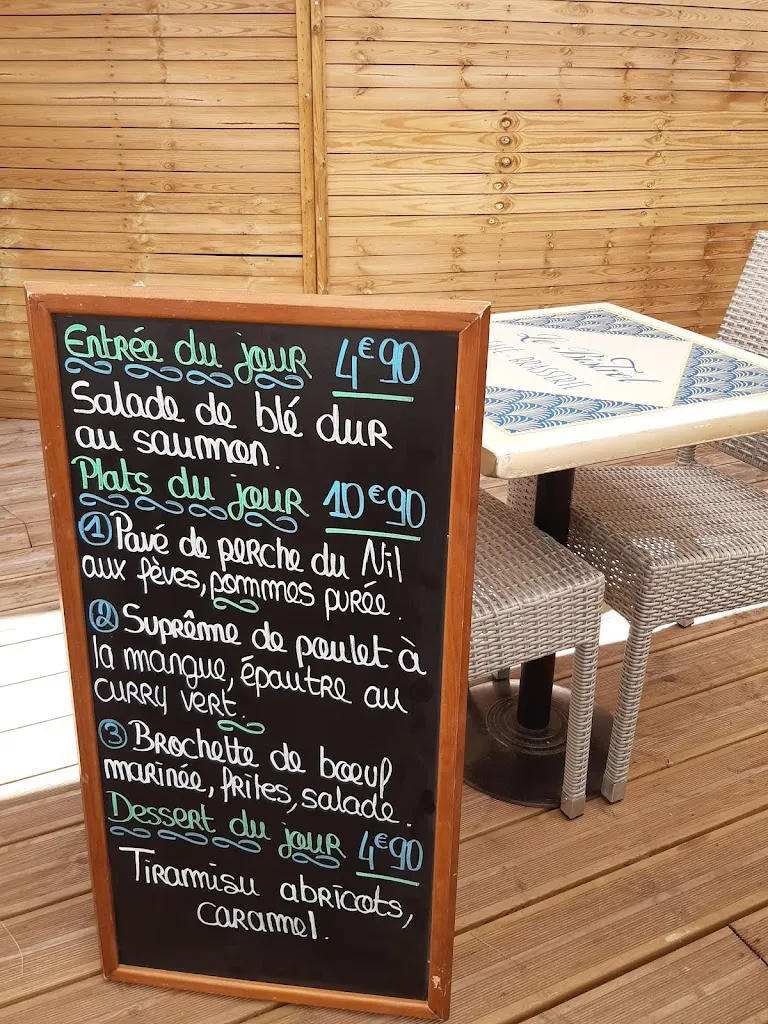 Entrée du jour 4€90
Salade de blé dur
au saumon.
Plats du jour 10€90
① Pavé de perche du Nil
aux fèves, pommes purée.
② Suprême de poulet à
la mangue, épautre au
curry vert.
③ Brochette de bœuf
marinée, frites, salade.
Dessert du jour 4€90
Tiramisu abricots,
caramel.
Le Bistrot
BRASSERIE